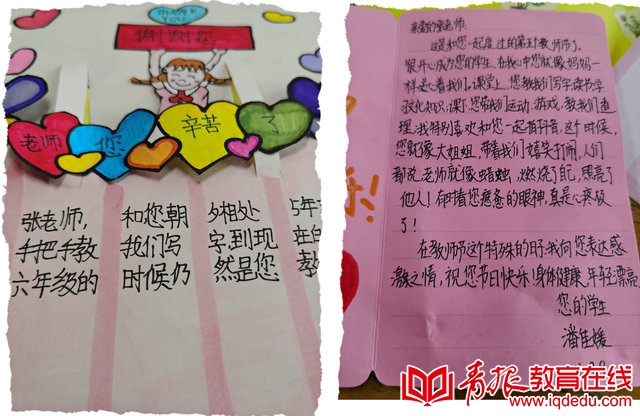 THANK
YOU
谢谢您
老师
您
辛苦
了
张老师,
手把手教
六年级的
和您朝
我们写
时候仍
夕相处
字,到现
然是您
5年
教
亲爱的张老师:
这是和您一起度过的第五个教师节了。
很开心成为您的学生。在我心中您就像妈妈一
样爱着我们。课堂上,您教我们写字读书学
文化知识,课下,您带我们运动、游戏,教我们道
理,我特别喜欢和您一起
您就像大姐姐,带着我们嬉笑打闹。人们
都说,老师就像蜡烛,燃烧了自己,照亮了
他人!每次看您疼惫的眼神,真是心疼极
了!
在教师节这个特殊的日子,我向您表达感
激之情,祝您节日快乐!身体健康,年轻漂亮。
您的学生
潘佳媛
青报教育在线
www.iqdedu.com